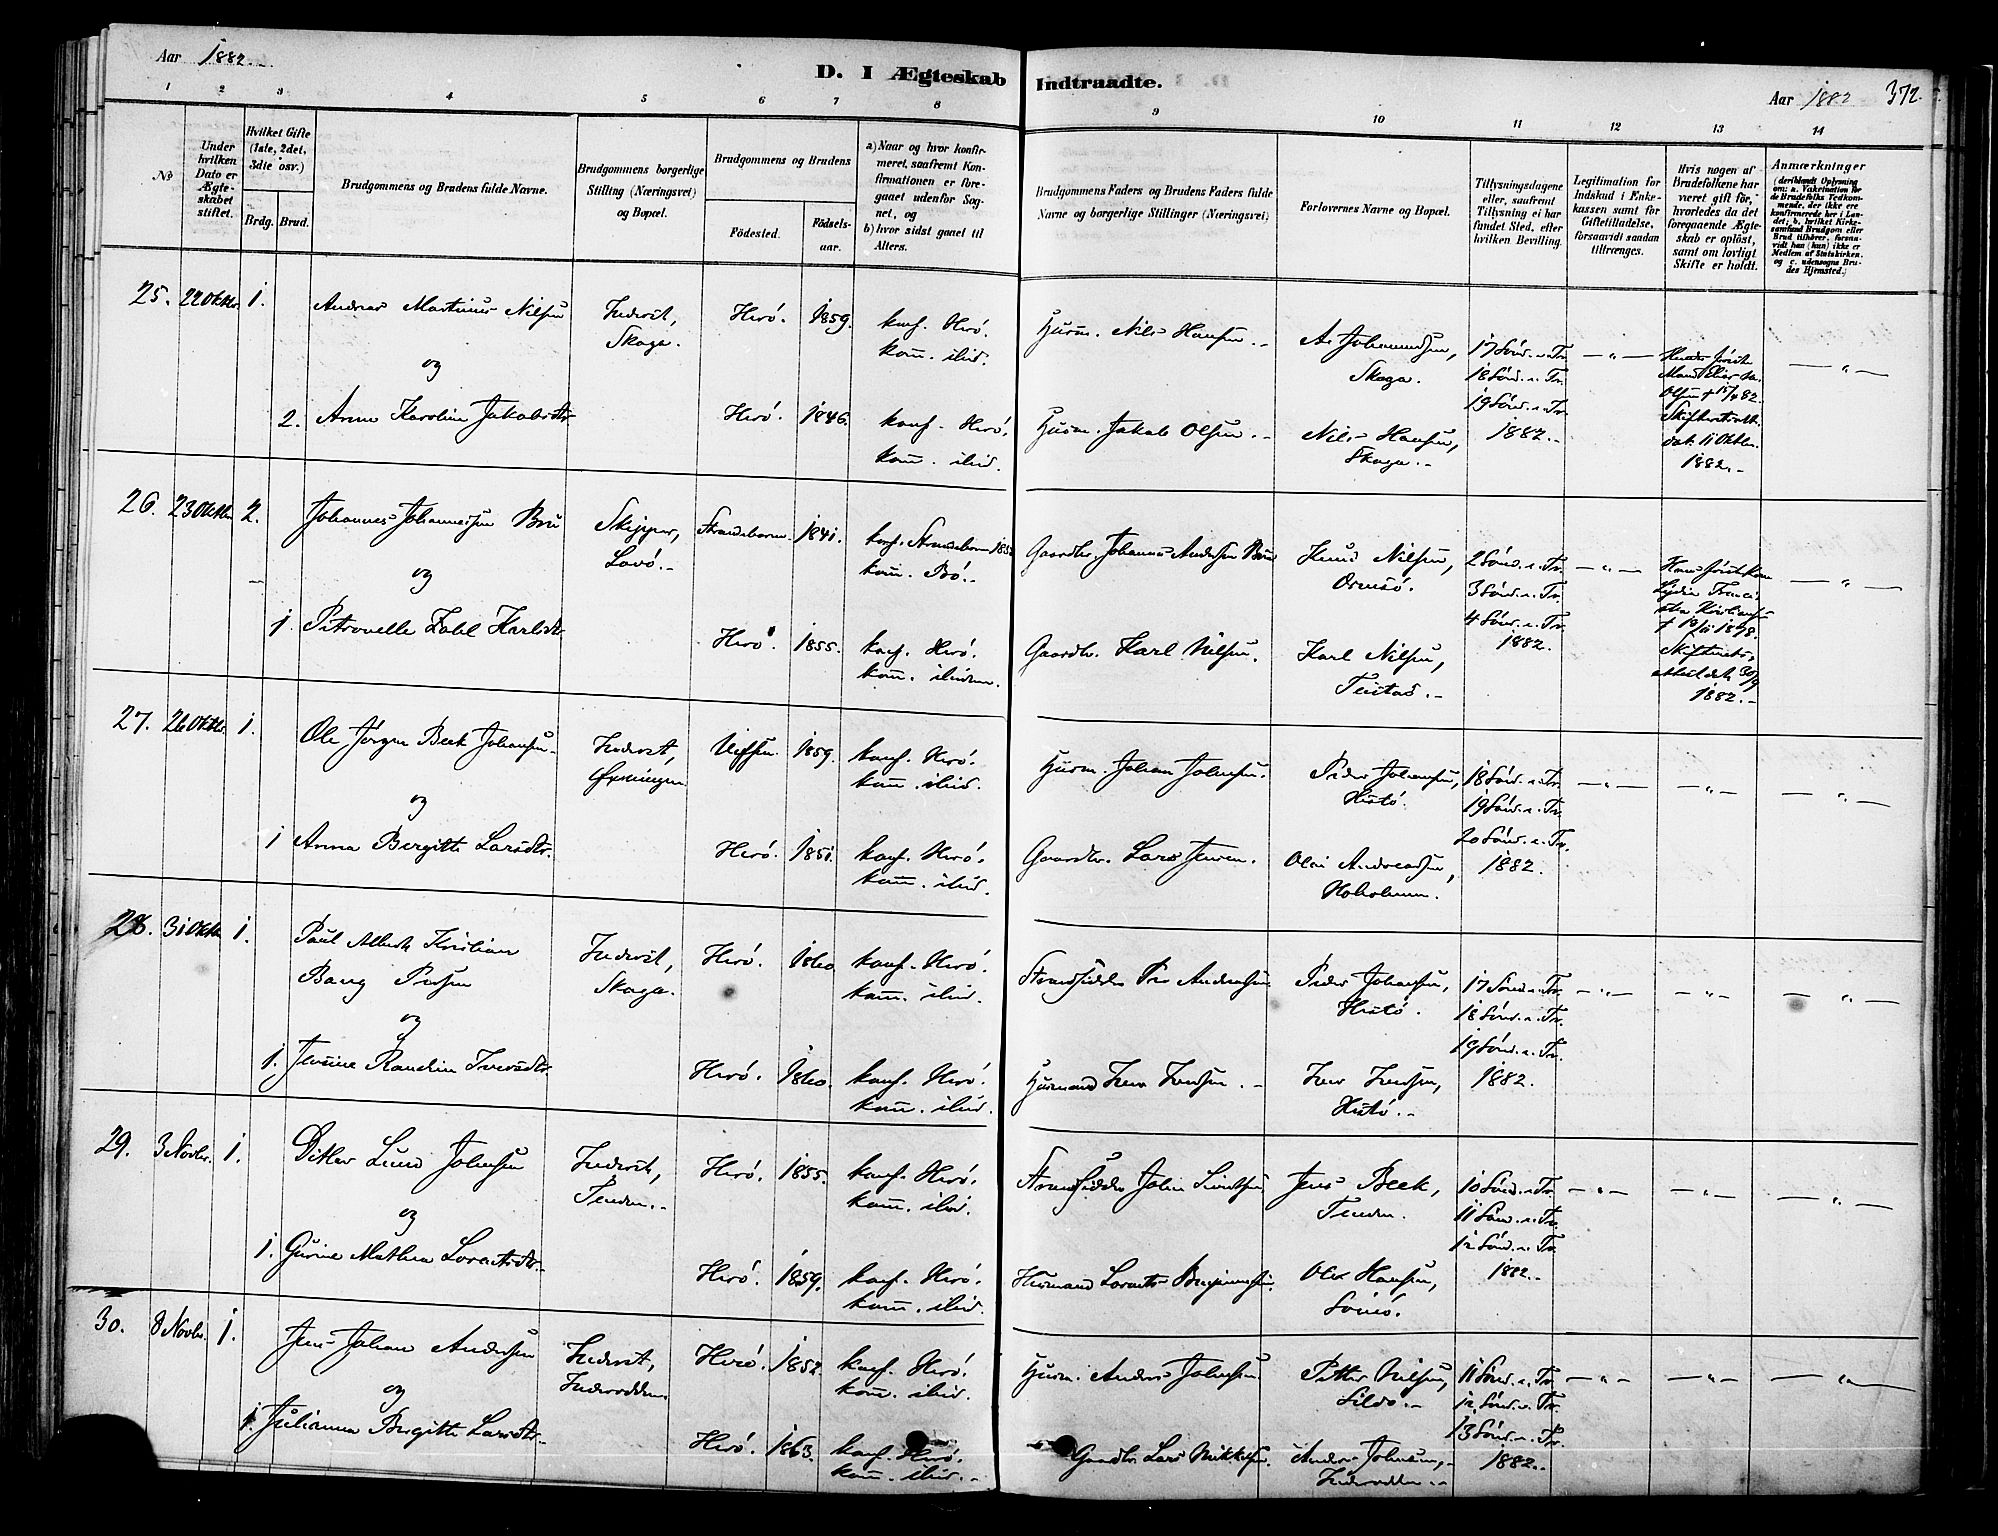 Aar 1882.
D. I Ægteskab Indtraadte.
Aar 1882 372.
1 2 3 4 5 6 7 8 9 10 11 12 13 14
No
Under hvilken Dato er Ægteskabet stiftet.
Hvilket Gifte (1ste, 2det, 3die osv.)
Brdg. Brud.
Brudgommens og Brudens fulde Navne.
Brudgommens borgerlige Stilling (Næringsvei) og Bopæl.
Brudgommens og Brudens
Födested. Födselsaar.
a) Naar og hvor konfirmeret, saafremt Konfirmationen er foregaaet udenfor Sognet, og
b) hvor sidst gaaet til Alters.
Brudgommens Faders og Brudens Faders fulde Navne og borgerlige Stillinger (Næringsvei)
Forlovernes Navne og Bopæl.
Tillysningsdagene eller, saafremt Tillysning ei har fundet Sted, efter hvilken Bevilling.
Legitimation for Indskud i Enkekassen samt for Giftetilladelse, forsaavidt saadan tiltrænges.
Hvis nogen af Brudefolkene har været gift för, hvorledes da det foregaaende Ægteskab er oplöst, samt om lovligt Skifte er holdt.
Anmærkninger
(deriblandt Oplysning om: a. Vakcination for de Brudefolks Vedkommende, der ikke ere konfirmerede her i Landet; b. hvilket Kirkesamfund Brudgom eller Brud tilhörer, forsaavidt han (hun) ikke er Medlem af Statskirken, og c. udensogns Brudes Hjemsted.)
25. 22 Oktbr. 1. Andreas Martinus Nilsen Inderst, Skaga. Herö. 1859. konf. Herö. kom. ibid. Husm. Nils Hansen. A. Johannesen, Skaga. 17 Sönd. e. Tr. 18 Sönd. e. Tr. 19 Sönd. e. Tr. 1882. — " —
og
2. Anne Karoline Jakobsdtr. Herö. 1846. konf. Herö. kom. ibid. Husm. Jakob Olsen. Nils Hansen, Skaga.
Olsen † 15/4 82. dat. 11 Oktbr. 1882. — " —
26. 23 Oktbr. 2. Johannes Johannessen Bru Skipper, Lovö. Strandebarm. 1841. konf. Strandebarm kom. Bö. Gaardbr. Johannes Andersen Knud Nilsen, Ormsö. 2 Sönd. e. Tr. 3 Sönd. e. Tr. 4 Sönd. e. Tr. 1882. — " —
og
1. Petronelle Zahl Karlsdtr. Herö. 1855. konf. Herö. kom. ibidem. Gaardbr. Karl Nilsen. Karl Nilsen, Teistad.
Hans förste Kone Lydia † 19/11 1878. Skifterets attest dat. 30/9 1882. — " —
27. 26 Oktbr. 1. Ole Jörgen Beck Johansen Inderst, Öxningen Vefsen. 1859. konf. Herö. kom. ibid. Husm. Johan Johnsen. Peder Johansen, Hestö. 18 Sönd. e. Tr. 19 Sönd. e. Tr. 20 Sönd. e. Tr. 1882. — " — — " — — " —
og
1 Anna Bergitte Larsdtr. Herö. 1851. konf. Herö. kom. ibid. Gaardbr. Lars Jensen. Olai Andreassen, Hokolmen.
28. 31 Oktbr. 1. Paul Albert Kristian Bang Persen Inderst, Skaga. Herö. 1860. konf. Herö. kom. ibid. Strandsidder Per Andersen Peder Johansen, Hestö. 17 Sönd. e. Tr. 18 Sönd. e. Tr. 19 Sönd. e. Tr. 1882. — " — — " — — " —
og
1. Jensine Randine Iversdtr. Herö. 1860. konf. Herö. kom. ibid. Husmand Iver Iversen. Iver Iversen, Hestö.
29. 3 Novbr. 1. Ditlev Lund Johnsen Inderst, Tenden. Herö. 1855. konf. Herö. kom. ibid. Strandsidder John Jens Beck, Tenden. 10 Sönd. e. Tr. 11 Sönd. e. Tr. 12 Sönd. e. Tr. 1882. — " — — " — — " —
og
1. Gurine Mathea Lorentsdtr. Herö. 1859. konf. Herö. kom. ibid. Husmand Lorents Benjaminsen. Oluf Hansen,
30. 8 Novbr. 1. Jens Johan Andersen Inderst, Herö. 1852. konf. Herö. kom. ibid. Husm. Anders Johnsen Petter Nilsen, Sildö. 11 Sönd. e. Tr. 12 Sönd. e. Tr. 13 Sönd. e. Tr. 1882. — " — — " — — " —
og
1. Julianna Bergitte Larsdtr. Herö. 1863. konf. Herö. kom. ibid. Gaardbr. Lars Mikkelsen. Anders Johnsen,